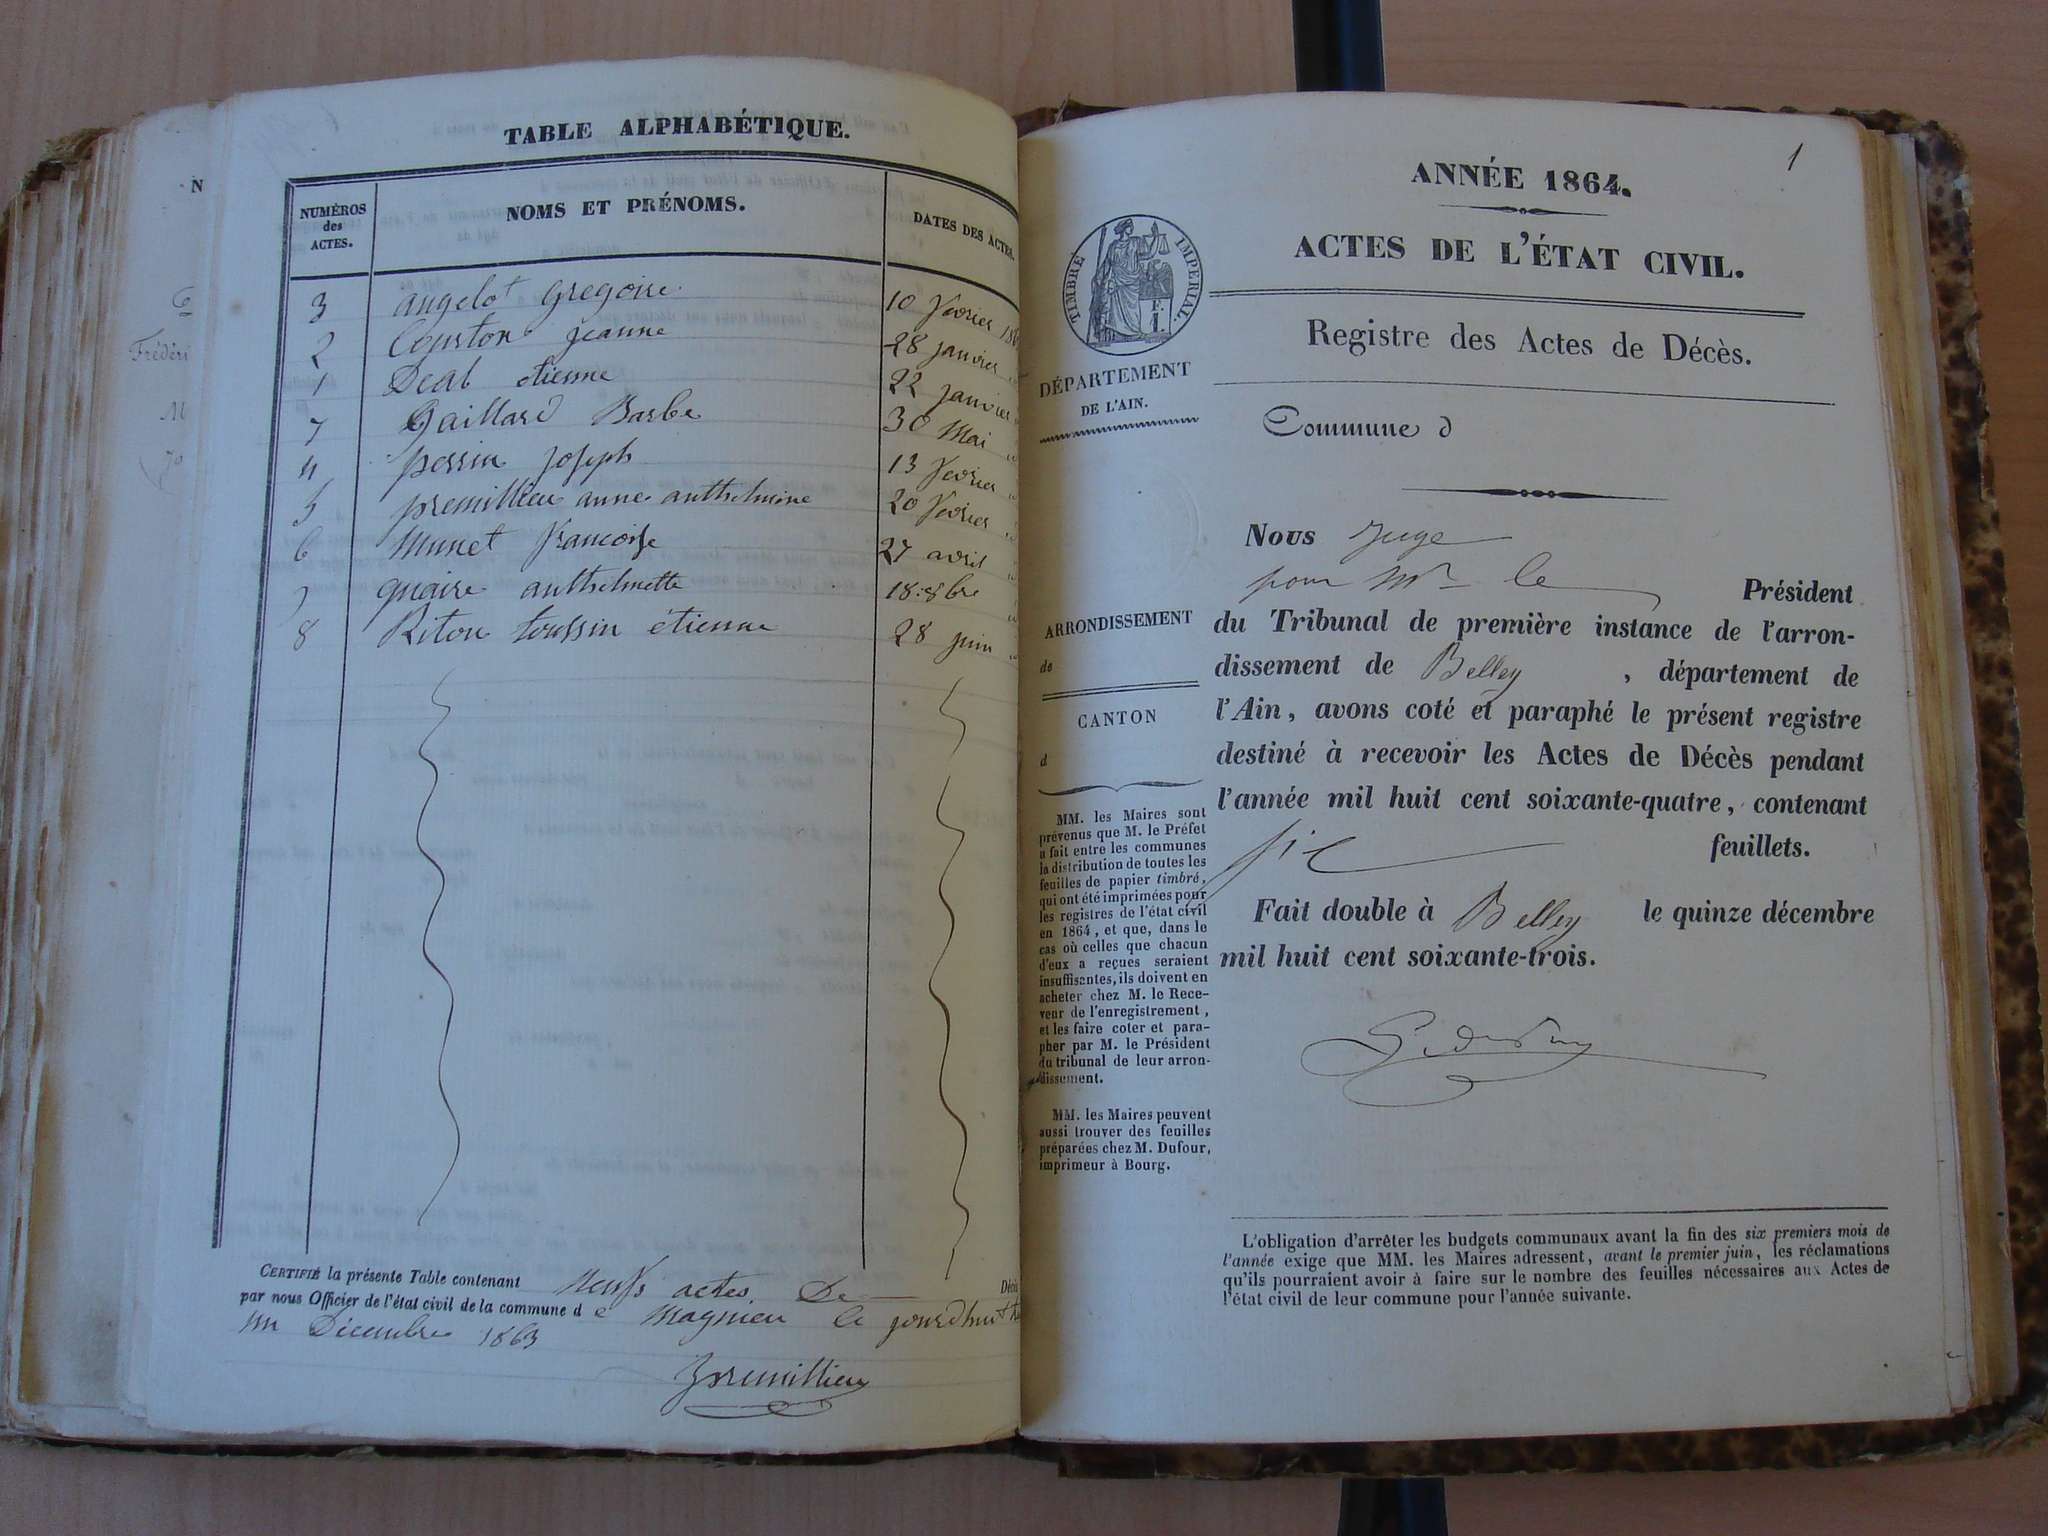 TABLE ALPHABÉTIQUE.
NUMÉROS
des
ACTES.
NOMS ET PRÉNOMS.
DATES DES ACTES.
3 angelot Gregoire 10 fevrier
2 Couston jeanne 28 janvier
1 Deal etienne 22 janvier
7 Gaillard Barbe 30 Mai
4 perrin joseph 13 fevrier
5 premillieu anne anthelmine 20 fevrier
6 Munet francoise 27 avril
quaire anthelmette 18:8bre
8 Riton toussin étienne 28 juin
CERTIFIÉ la présente Table contenant neufs actes De
par nous Officier de l'état civil de la commune d e Magnieu le jourdhuit
un Décembre 1863
premillieu
N
Frédéri
M
1
ANNÉE 1864.
ACTES DE L'ÉTAT CIVIL.
Registre des Actes de Décès.
TIMBRE IMPÉRIAL.
DÉPARTEMENT
DE L'AIN.
Commune d
Nous Juge
pour Mr le Président
du Tribunal de première instance de l'arron-
dissement de Belley , département de
l'Ain, avons coté et paraphé le présent registre
destiné à recevoir les Actes de Décès pendant
l'année mil huit cent soixante-quatre, contenant
six feuillets.
Fait double à Belley le quinze décembre
mil huit cent soixante-trois.
ARRONDISSEMENT
de
CANTON
d
MM. les Maires sont
prévenus que M. le Préfet
a fait entre les communes
la distribution de toutes les
feuilles de papier timbré,
qui ont été imprimées pour
les registres de l'état civil
en 1864, et que, dans le
cas où celles que chacun
d'eux a reçues seraient
insuffisantes, ils doivent en
acheter chez M. le Rece-
veur de l'enregistrement,
et les faire coter et para-
pher par M. le Président
du tribunal de leur arron-
dissement.
MM. les Maires peuvent
aussi trouver des feuilles
préparées chez M. Dufour,
imprimeur à Bourg.
L'obligation d'arrêter les budgets communaux avant la fin des six premiers mois de
l'année exige que MM. les Maires adressent, avant le premier juin, les réclamations
qu'ils pourraient avoir à faire sur le nombre des feuilles nécessaires aux Actes de
l'état civil de leur commune pour l'année suivante.